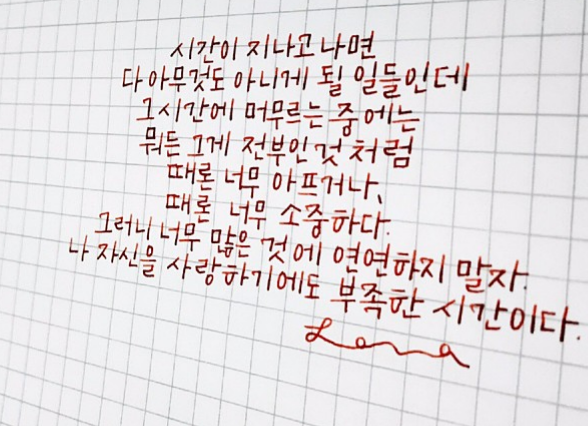 시간이 지나고 나면
다 아무것도 아니게 될 일들인데
그 시간에 머무르는 중에는
뭐든 그게 전부인 것 처럼
때론 너무 아프거나,
때론 너무 소중하다.
그러니 너무 많은 것에 연연하지 말자.
나 자신을 사랑하기에도 부족한 시간이다.
Lena